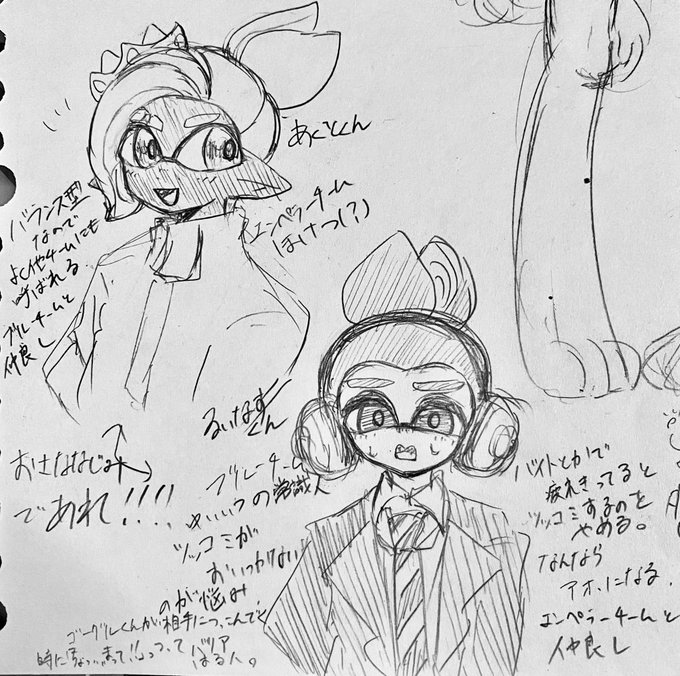 あぐとくん
エンペラーチーム
ほけつ(?)
バランス型
なので
よく他チームにも
呼ばれる
ブルーチームと
仲良し
るいなすくん
おさななじみ
であれ!!!!
ブルーチーム
ゆいいつの常識人
ツッコミが
おいつかない
のが悩み
ゴーグルくんが相手につっこんでく
時に「ちょっ…まって!!」っつって バリア
はる人。
バイトとかで
疲れきってると
ツッコミするのを
やめる。
なんなら
アホになる。
エンペラーチームと
仲良し